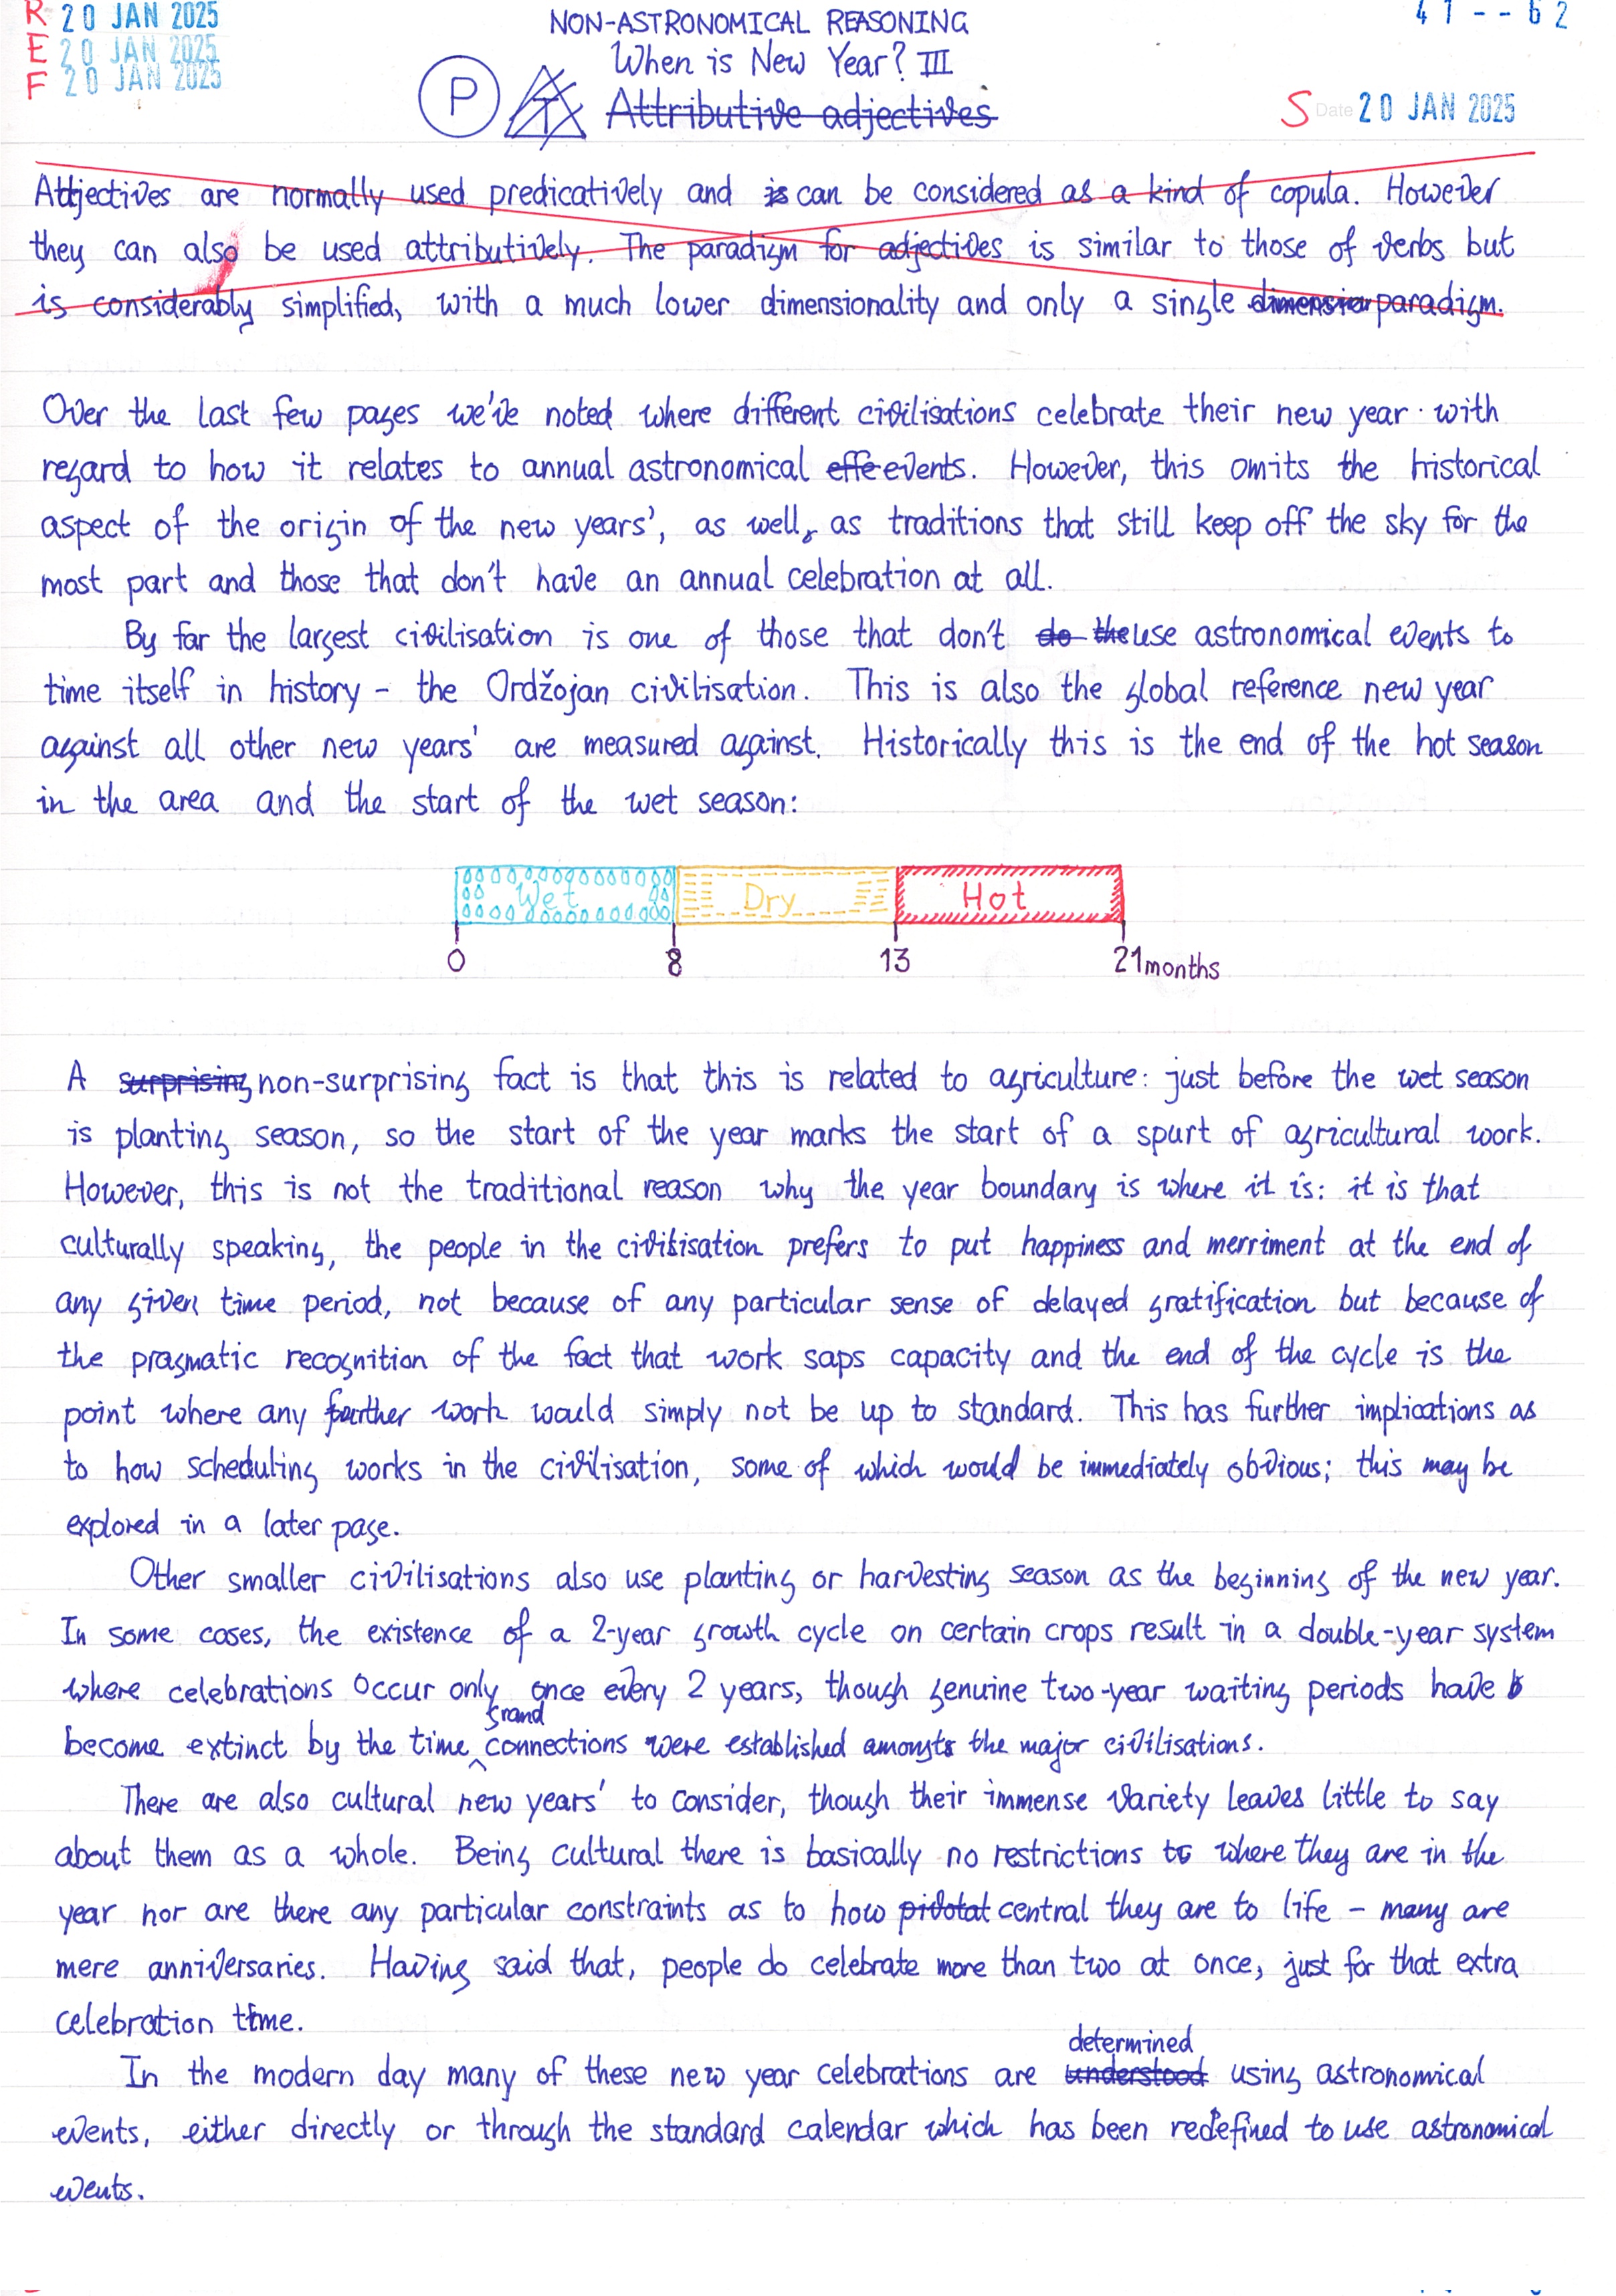 R 20 JAN 2025
E 20 JAN 2025
F 20 JAN 2025
NON-ASTRONOMICAL REASONING
When is New Year? III
P
Attributive adjectives
41--62
S Date 20 JAN 2025
Adjectives are normally used predicatively and is can be considered as a kind of copula. However
they can also be used attributively. The paradigm for adjectives is similar to those of verbs but
is considerably simplified, with a much lower dimensionality and only a single dimension paradigm.
Over the last few pages we've noted where different civilisations celebrate their new year with
regard to how it relates to annual astronomical effe events. However, this omits the historical
aspect of the origin of the new years', as well, as traditions that still keep off the sky for the
most part and those that don't have an annual celebration at all.
By far the largest civilisation is one of those that don't do the use astronomical events to
time itself in history - the Ordžojan civilisation. This is also the global reference new year
against all other new years' are measured against. Historically this is the end of the hot season
in the area and the start of the wet season:
Wet Dry Hot
0 8 13 21 months
A surprising non-surprising fact is that this is related to agriculture: just before the wet season
is planting season, so the start of the year marks the start of a spurt of agricultural work.
However, this is not the traditional reason why the year boundary is where it is: it is that
culturally speaking, the people in the civilisation prefers to put happiness and merriment at the end of
any given time period, not because of any particular sense of delayed gratification but because of
the pragmatic recognition of the fact that work saps capacity and the end of the cycle is the
point where any further work would simply not be up to standard. This has further implications as
to how scheduling works in the civilisation, some of which would be immediately obvious; this may be
explored in a later page.
Other smaller civilisations also use planting or harvesting season as the beginning of the new year.
In some cases, the existence of a 2-year growth cycle on certain crops result in a double-year system
where celebrations occur only once every 2 years, though genuine two-year waiting periods have b
become extinct by the time grand connections were established amongst the major civilisations.
There are also cultural new years' to consider, though their immense variety leaves little to say
about them as a whole. Being cultural there is basically no restrictions to where they are in the
year nor are there any particular constraints as to how pivotal central they are to life - many are
mere anniversaries. Having said that, people do celebrate more than two at once, just for that extra
celebration time.
In the modern day many of these new year celebrations are understood determined using astronomical
events, either directly or through the standard calendar which has been redefined to use astronomical
events.